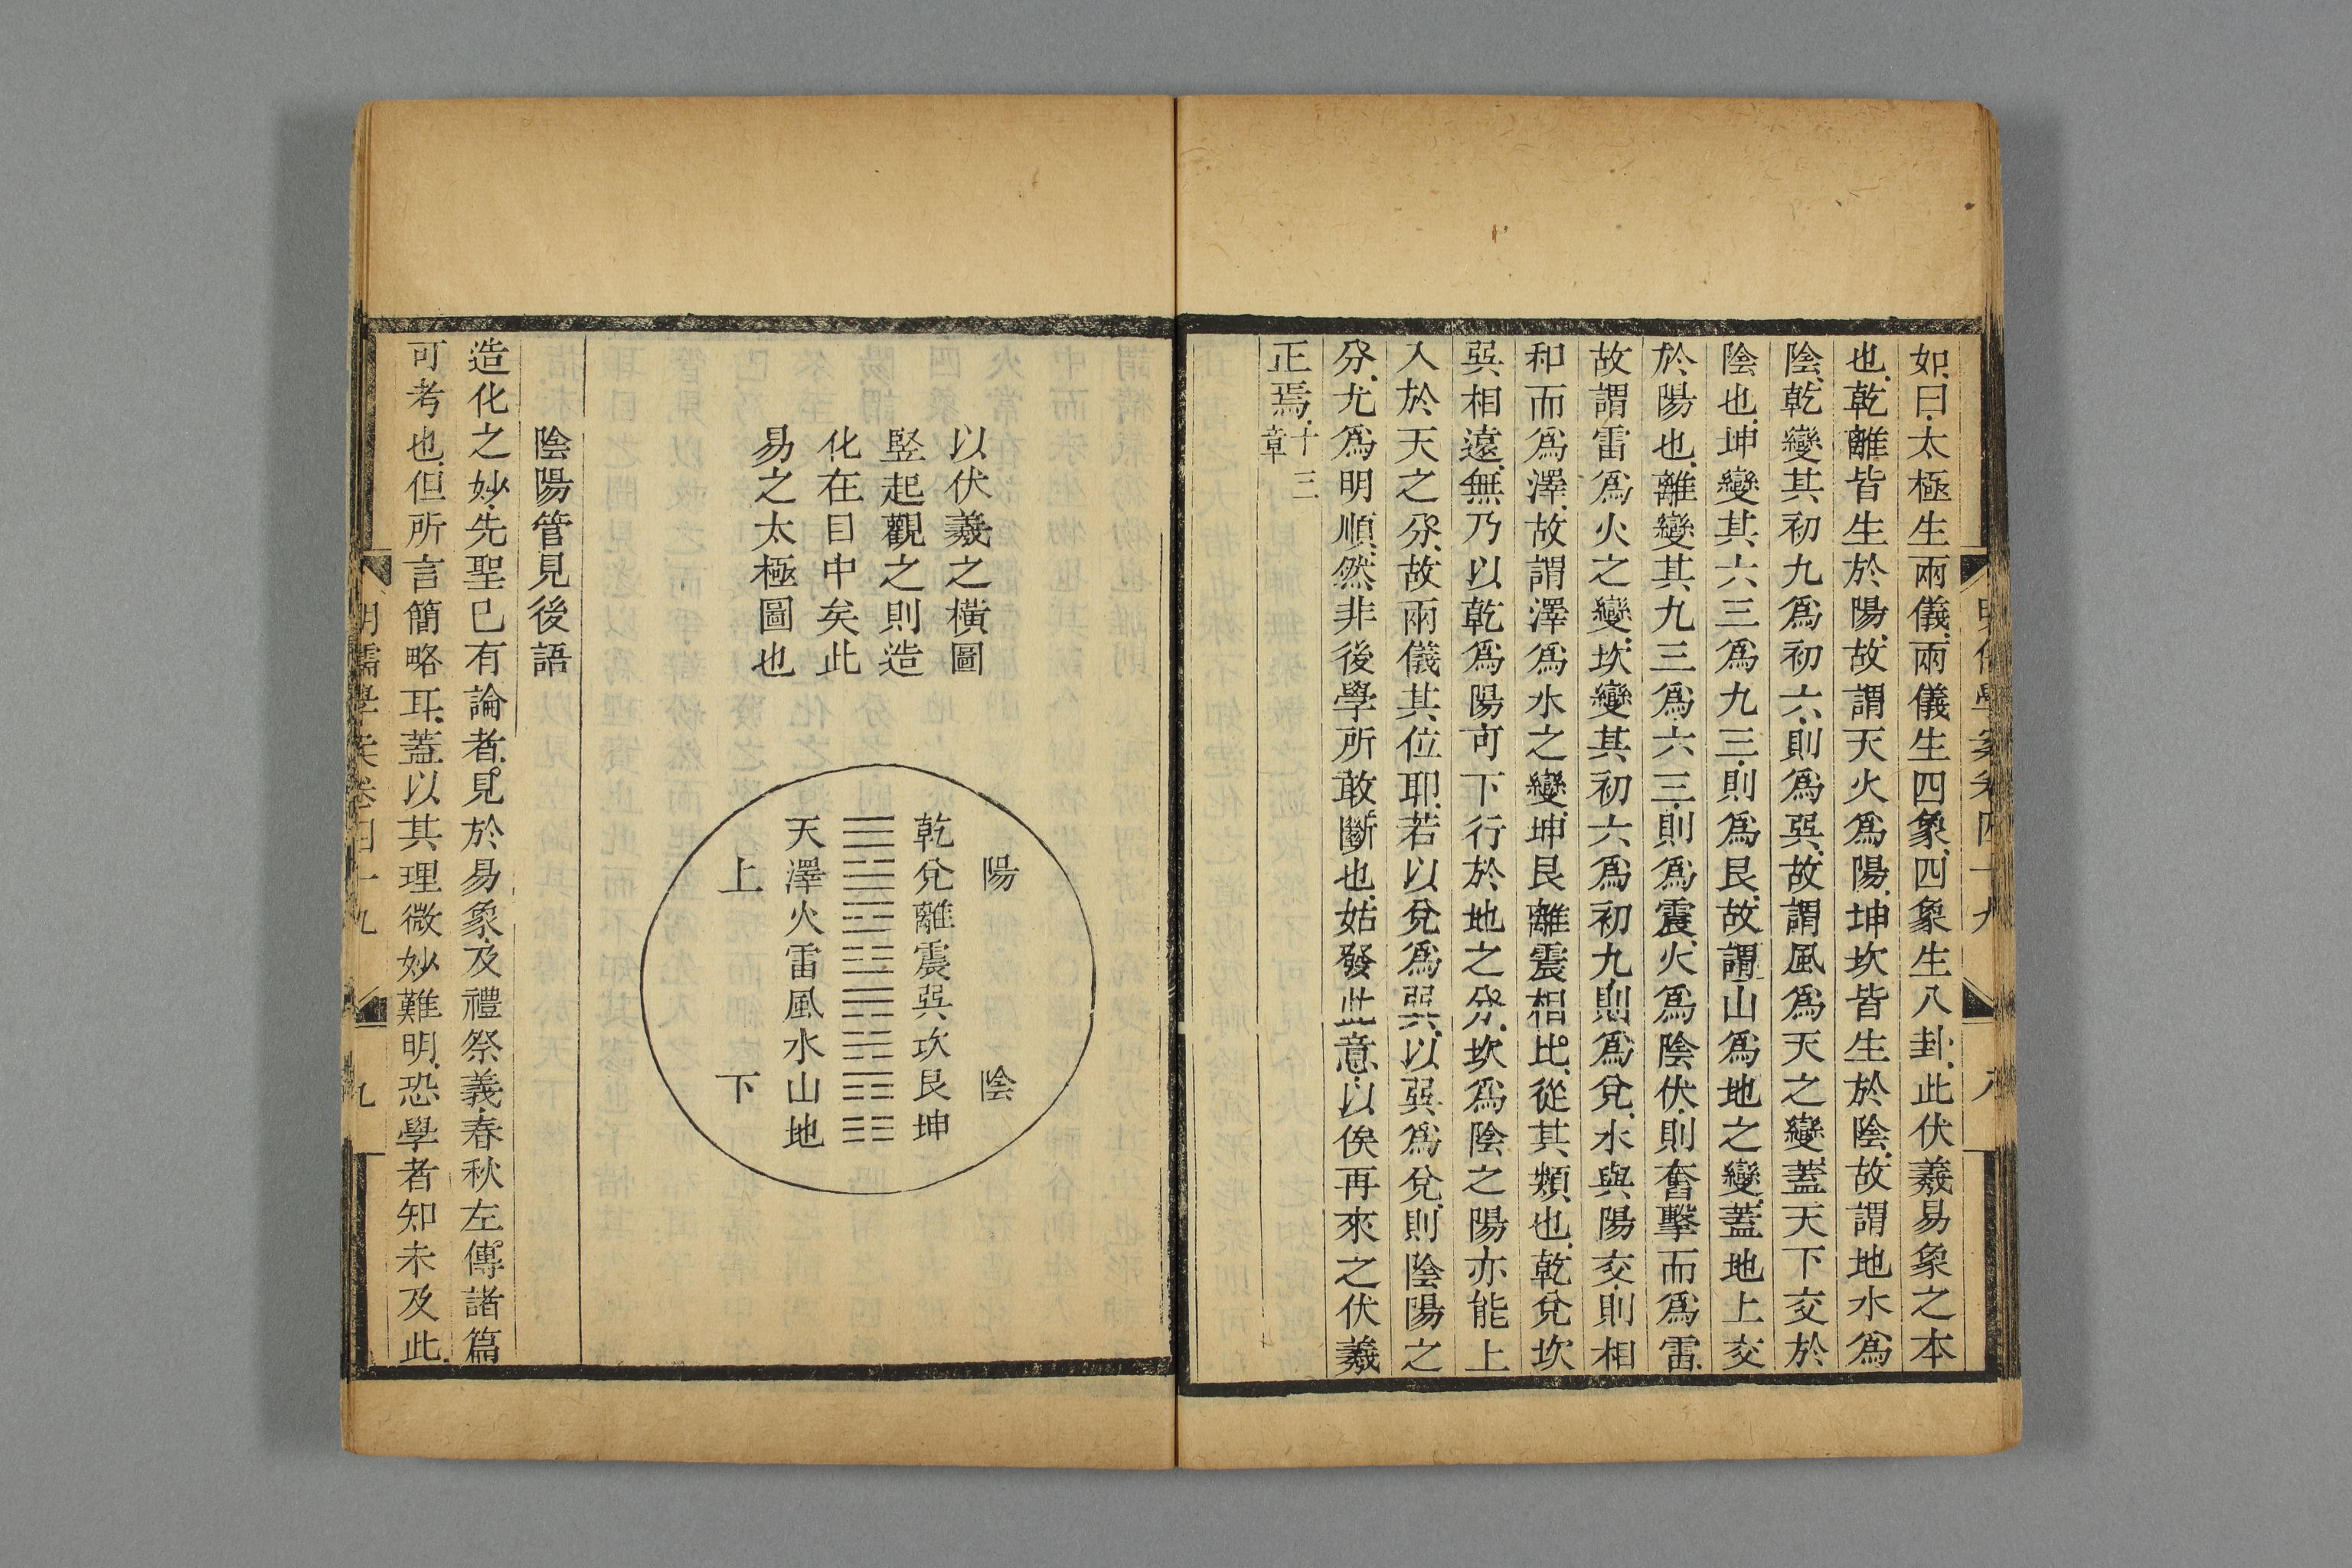 如曰太極生兩儀兩儀生四象四象生八卦此伏羲易象之本
也乾離皆生於陽故謂天火爲陽坤坎皆生於陰故謂地水爲
陰乾變其初九爲初六則爲巽故謂風爲天之變蓋天下交於
陰也坤變其六三爲九三則爲艮故謂山爲地之變蓋地上交
於陽也離變其九三爲六三則爲震火爲陰伏則奮擊而爲雷
故謂雷爲火之變坎變其初六爲初九則爲兌水與陽交則相
和而爲澤故謂澤爲水之變坤艮離震相比從其類也乾兌坎
巽相遠無乃以乾爲陽可下行於地之分坎爲陰之陽亦能上
入於天之分故兩儀其位耶若以兌爲巽以巽爲兌則陰陽之
分尤爲明順然非後學所敢斷也姑發此意以俟再來之伏羲
正焉十三章
以伏羲之橫圖
竪起觀之則造
化在目中矣此
易之太極圖也
陽 陰
乾兌離震巽坎艮坤
☰☱☲☳☴☵☶☷
天澤火雷風水山地
上 下
陰陽管見後語
造化之妙先聖已有論者見於易象及禮祭義春秋左傳諸篇
可考也但所言簡略耳蓋以其理微妙難明恐學者知未及此
明儒學案卷四十九 九